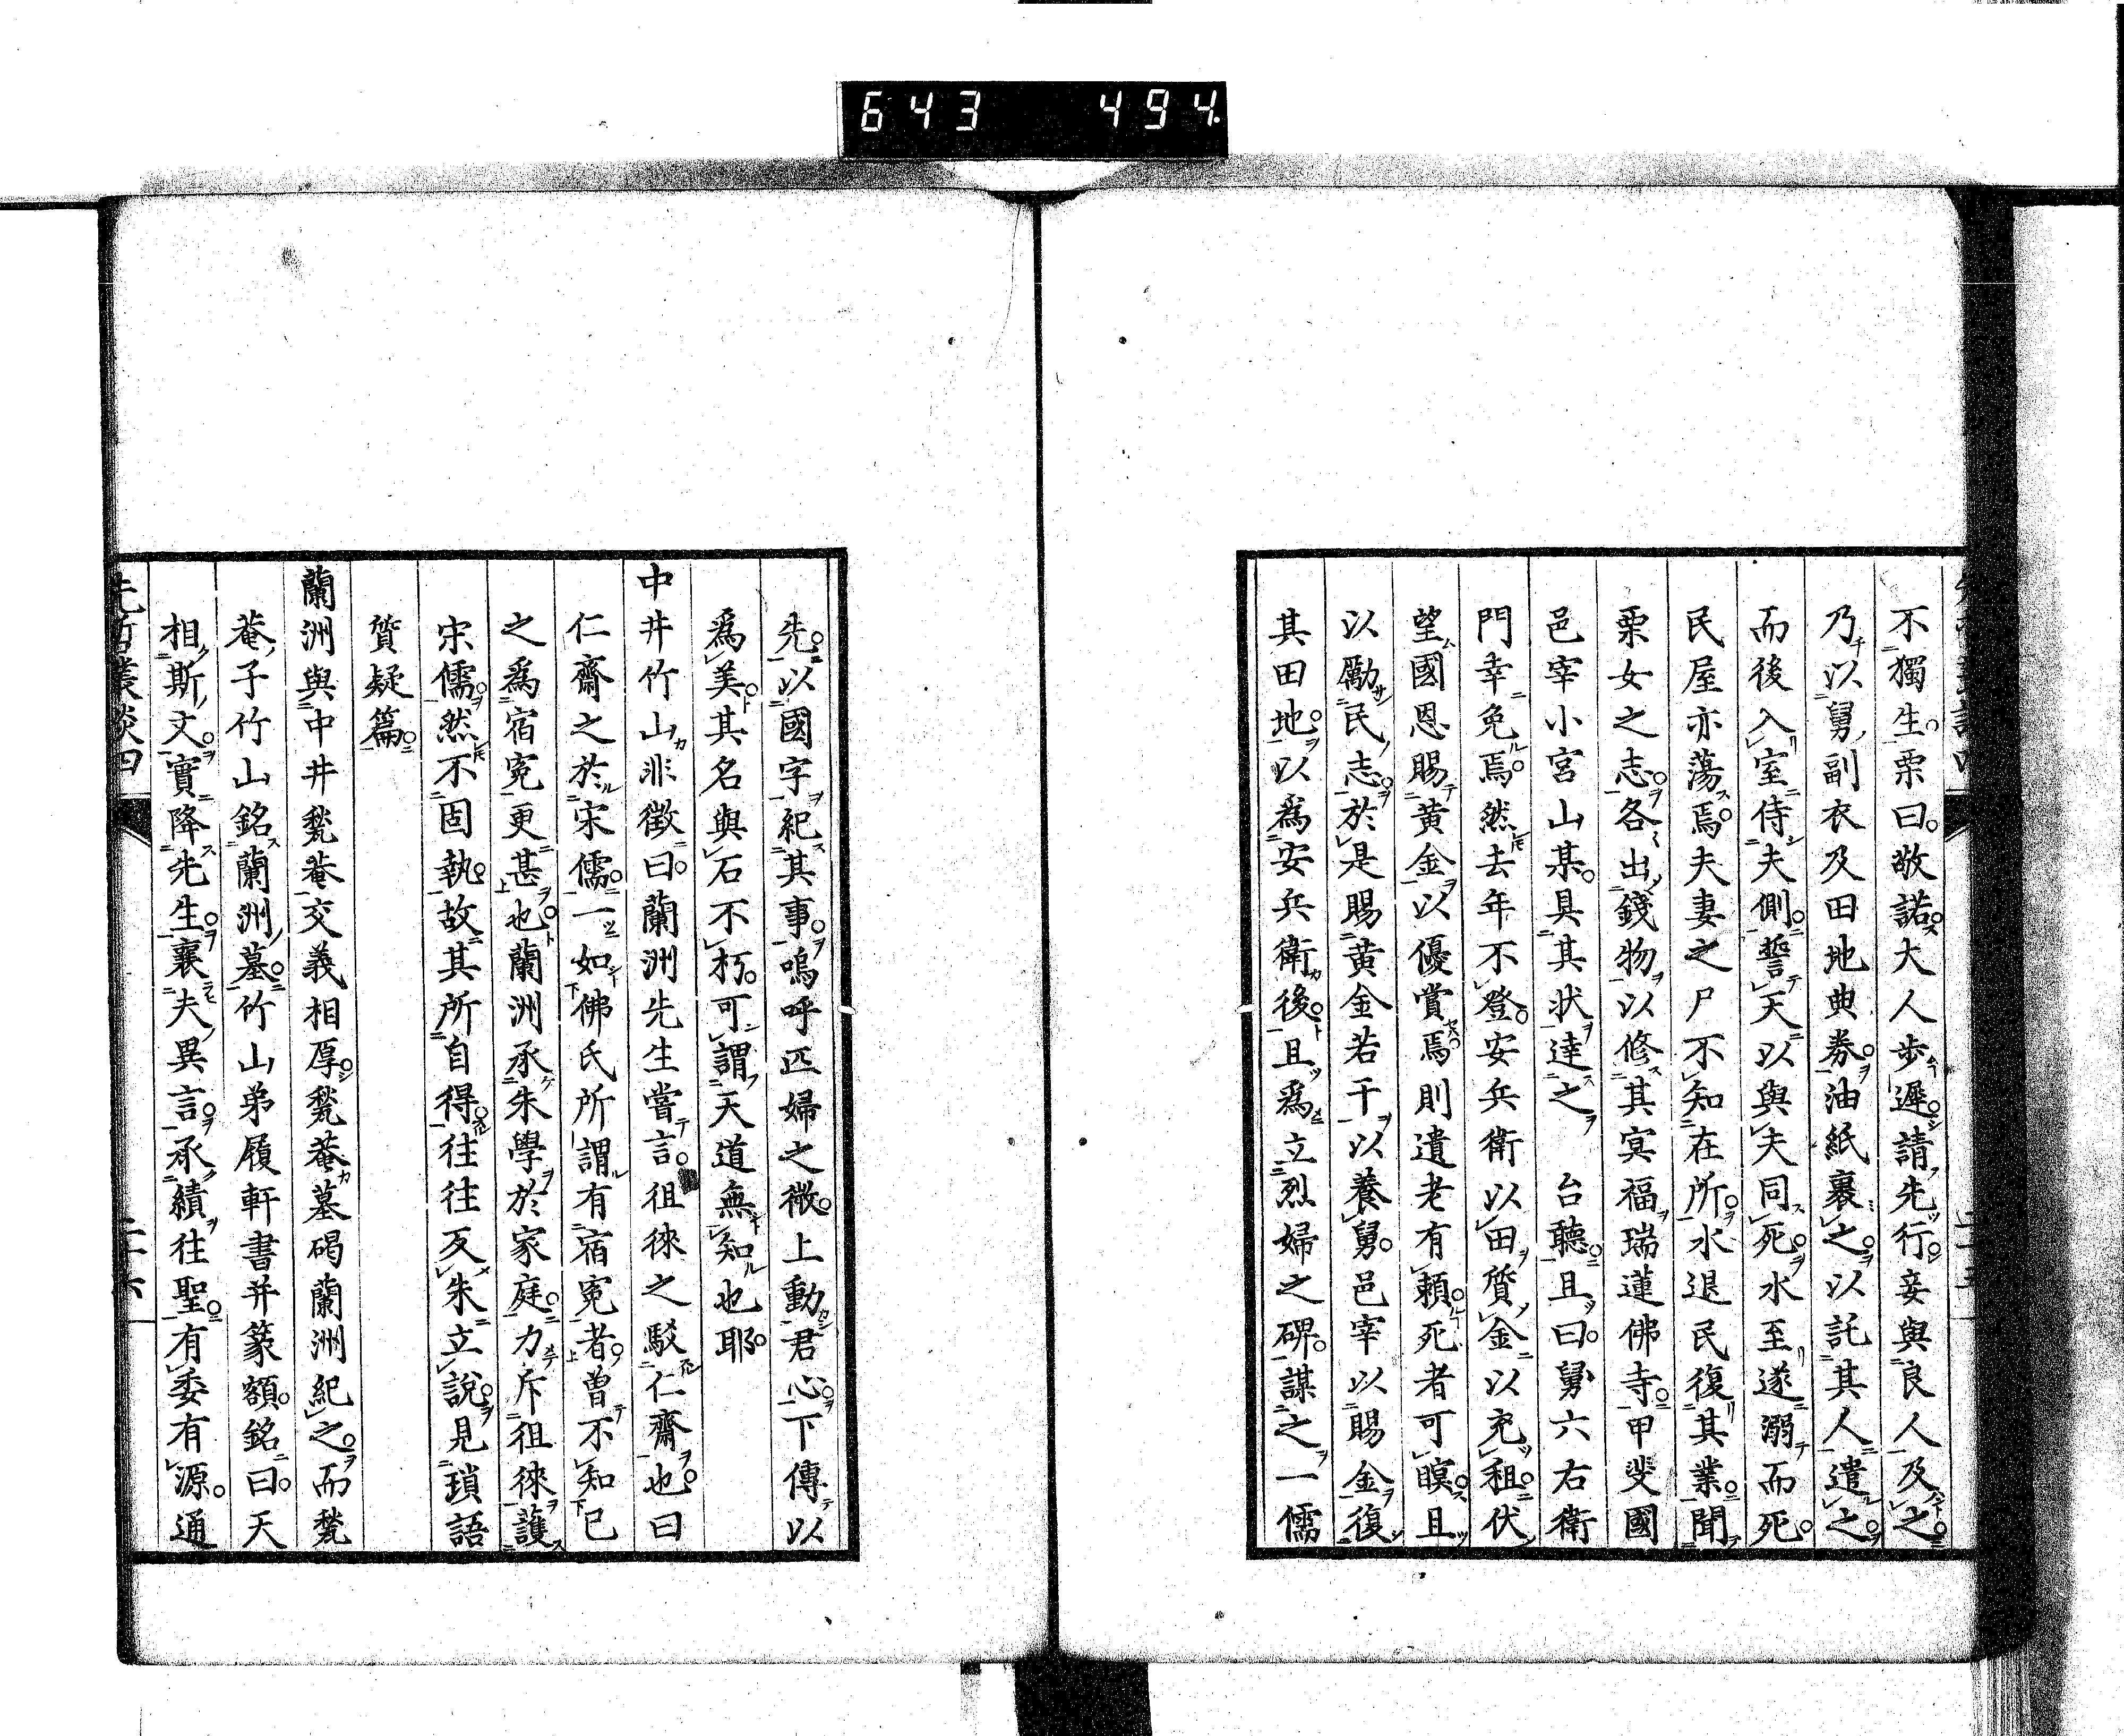 643 494.
不獨生栗曰敬諾大人步遲請先行妾與良人及之
乃以舅副衣及田地典劵油紙裹之以託其人遣之
而後入室侍夫側誓天以與夫同死水至遂溺而死
民屋亦蕩焉夫妻之尸不知在所水退民復其業聞
栗女之志各出錢物以修其冥福瑞蓮佛寺甲斐國
邑宰小宮山某具其狀達之 台聽且曰舅六右衛
門幸免焉然去年不登安兵衛以田質金以充租伏
望國恩賜黃金以優賞焉則遺老有賴死者可瞑且
以勵民志於是賜黃金若干以養舅邑宰以賜金復
其田地以爲安兵衛後且爲立烈婦之碑謀之一儒
先以國字紀其事嗚呼匹婦之微上動君心下傳以
爲美其名與石不朽可謂天道無知也耶
中井竹山非徵曰蘭洲先生嘗言徂徠之駁仁齋也曰
仁齋之於宋儒一如佛氏所謂有宿寃者曾不知已
之爲宿寃更甚也蘭洲承朱學於家庭力斥徂徠護
宋儒然不固執故其所自得往往反朱立說見瑣語
質疑篇
蘭洲與中井甃菴交義相厚甃菴墓碣蘭洲紀之而甃
菴子竹山銘蘭洲墓竹山弟履軒書并篆額銘曰天
相斯文實降先生襄夫異言承績往聖有委有源通
先哲叢談四
二十六